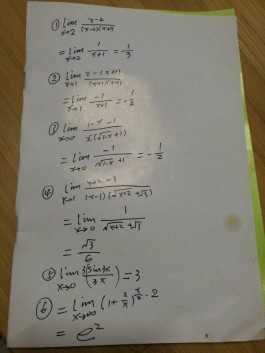 ① lim x→2 x-2/(x-2)(x+1)
= lim x→2 1/x+1 = 1/3
② lim x→1 2-(x+1)/(x+1)(x-1)
= lim x→1 -1/x+1 = -1/2
③ lim x→0 1-x-1/x(√1-x+1)
= lim x→0 -1/√1-x+1 = -1/2
④ lim x→1 x+2-3/(x-1)(√x+2+√3)
= lim x→0 1/√x+2+√3
= √3/6
⑤ lim x→0 3(sin3x/3x) = 3
⑥ = lim x→∞ (1+2/x)^x/2·2
= e²